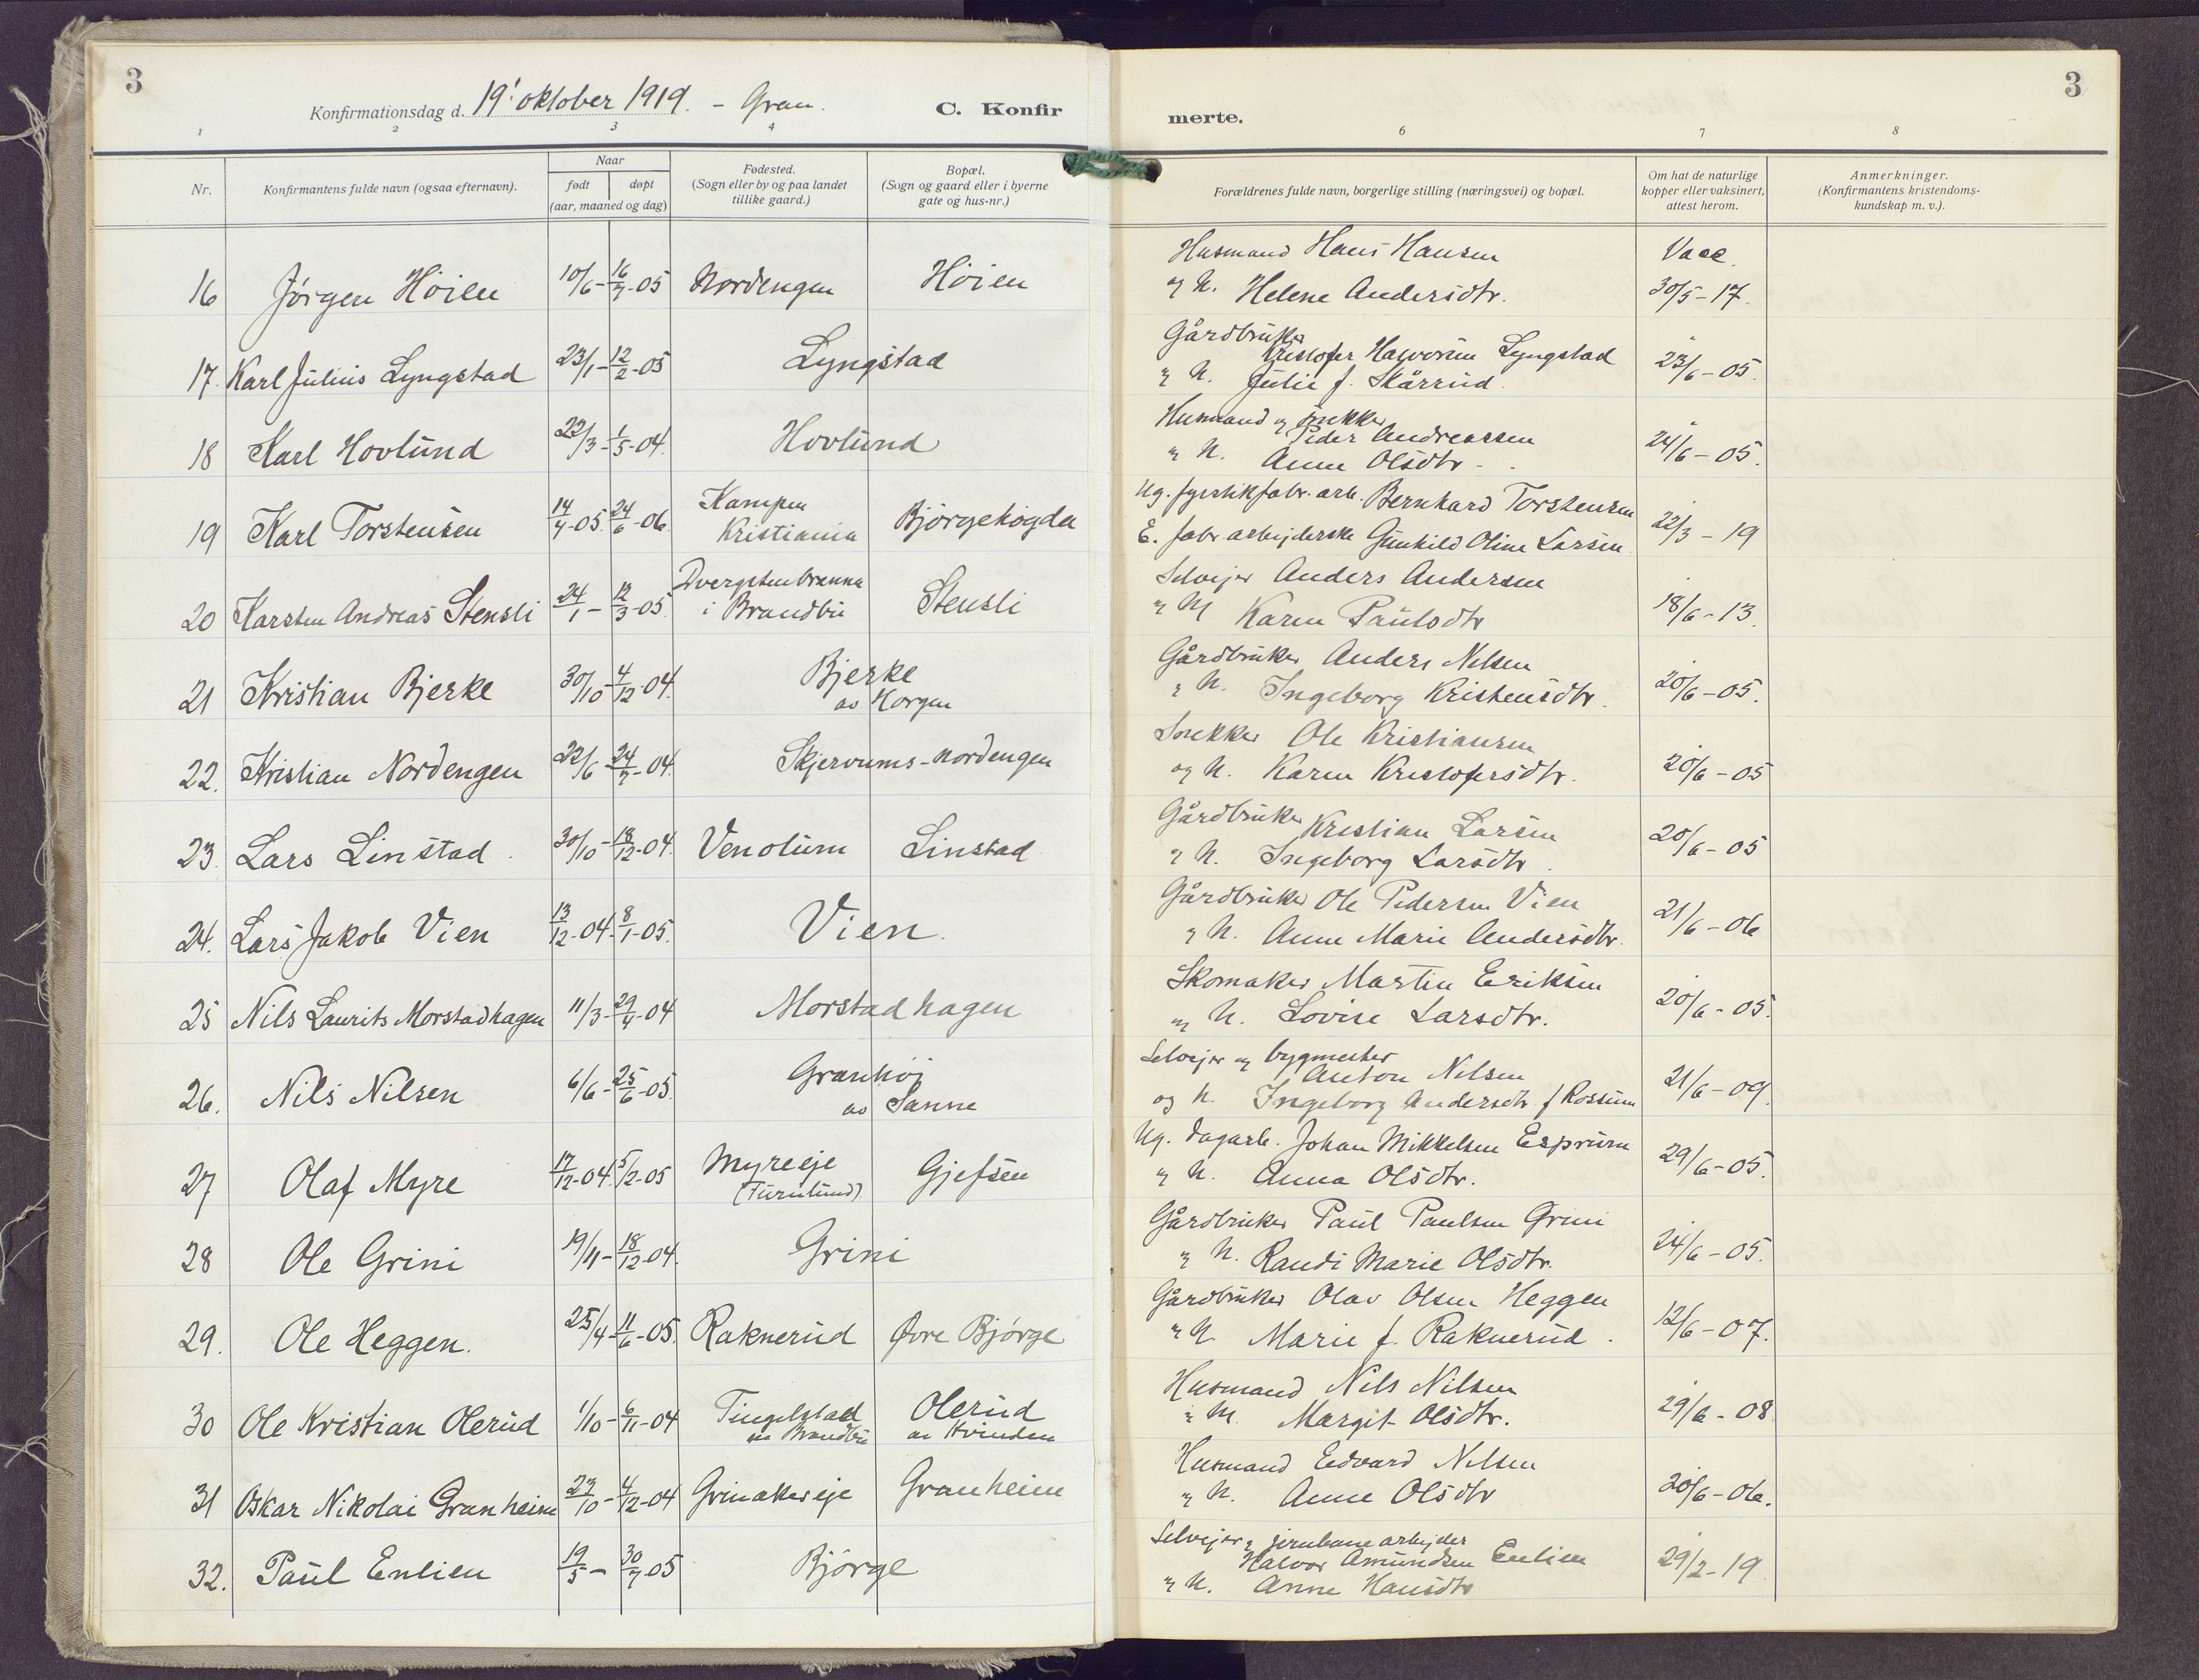 3
Konfirmationsdag d. 19' oktober 1919. – Gran.
C. Konfir
1 2 3 4
Nr.
Konfirmantens fulde navn (ogsaa efternavn).
Naar
født døpt
(aar, maaned og dag)
Fødested.
(Sogn eller by og paa landet
tillike gaard.)
Bopæl.
(Sogn og gaard eller i byerne
gate og hus-nr.)
16 Jörgen Höien 10/6 - 16/7-05 Nordengen Höien
17. Karl Julius Lyngstad 23/1 - 12/2-05 Lyngstad
18 Karl Hovlund 22/3 - 1/5-04. Hovlund
19 Karl Torstensen 14/4-05. 24/6-06. Kampen Kristiania Björgehögda
20 Karsten Andreas Stensli 24/1 - 12/3-05. Dvergstenbrenna i Brandbu Stensli
21 Kristian Bjerke 30/10 - 4/12-04. Bjerke av Horgen
22. Kristian Nordengen 22/6 - 24/7-04. Skjervums-nordengen
23. Lars Linstad. 30/10 - 18/12-04. Venolum Linstad
24. Lars Jakob Vien 13/12-04. 8/1-05. Vien.
25 Nils Laurits Morstadhagen 11/3 - 29/4-04 Morstadhagen
26. Nils Nilsen 6/6 - 25/6-05. Granhöi av Sanne
27 Olaf Myre 17/12-04. 5/2-05 Myreeje (Furulund) Gjefsen
28 Ole Grini 19/11 - 18/12-04. Grini
29. Ole Heggen. 25/4 - 11/6-05. Raknerud Övre Björge
30 Ole Kristian Olerud 1/10 - 6/11-04 Tingelstad Brandbu Olerud av Hvinden
31 Oskar Nikolai Granheim 23/10 - 4/12-04 Grinakereje Granheim
32. Paul Enlien 19/5 - 30/7-05 Björge
3
merte.
6 7 8
Forældrenes fulde navn, borgerlige stilling (næringsvei) og bopæl.
Om hat de naturlige
kopper eller vaksinert,
attest herom.
Anmerkninger.
(Konfirmantens kristendoms-
kundskap m. v.).
Husmand Hans Hansen Vacc.
og H. Helene Andersdtr. 30/5-17.
Gårdbruker
Kristofer Halvorsen Lyngstad
" H. Julie f. Skårrud. 23/6-05.
Husmand og snekker
Peder Andreassen
" H. Anne Olsdtr. 24/6-05.
Ug. fyrstikfabr. arb. Bernhard Torstensen
E. fabr arbejderske Gunhild Oline Larsen 22/3-19
Selvejer Anders Andersen
" H Karen Paulsdtr 18/6-13.
Gårdbruker Anders Nilsen
" H. Ingeborg Kristensdtr. 20/6-05.
Snekker Ole Kristiansen
og H. Karen Kristofersdtr. 20/6-05
Gårdbruker Kristian Larsen
" H. Ingeborg Larsdtr. 20/6-05
Gårdbruker Ole Pedersen Vien
" H. Anne Marie Andersdtr. 21/6-06
Skomaker Martin Eriksen
" H. Lovise Larsdtr. 20/6-05.
Selvejer og bygmester
Anton Nilsen
og H. Ingeborg Andersdtr f Rossum 21/6-09.
Ug. dagarb. Johan Mikkelsen Esprum
" H. Anna Olsdtr. 29/6-05.
Gårdbruker Paul Paulsen Grini
" H. Randi Marie Olsdtr. 24/6-05.
Gårdbruker Olav Olsen Heggen
" H. Marie f. Raknerud. 12/6-07.
Husmand Nils Nilsen
" H. Margit Olsdtr. 29/6-08
Husmand Edvard Nilsen
" H. Anne Olsdtr 20/6-06.
Selvejer " jernbanearbejder
Halvor Amundsen Enlien
" H. Anne Hansdtr 29/2-19.